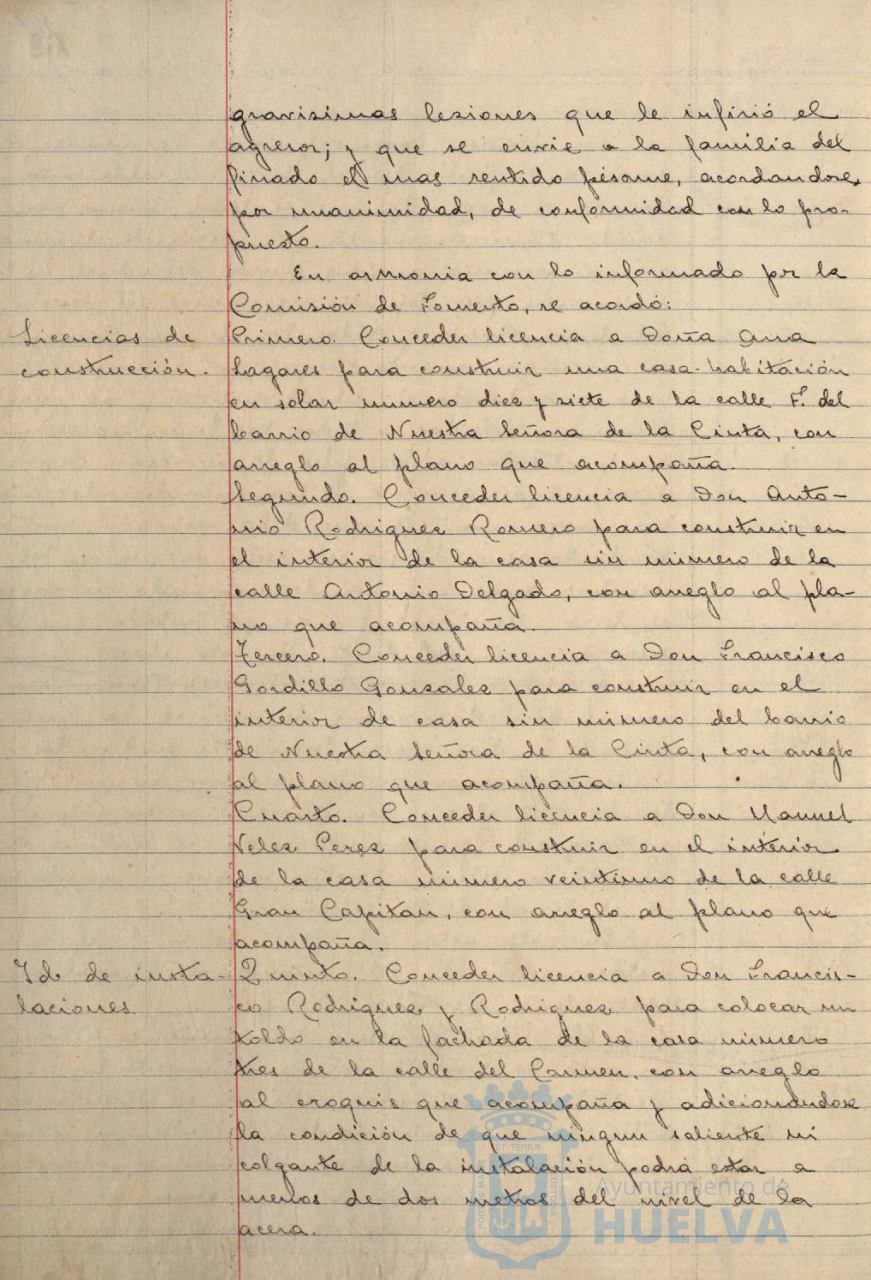 gravisimas lesiones que le infirió el
agresor; y que se envie a la familia del
finado el mas sentido pésame, acordandose,
por unanimidad, de conformidad con lo pro-
puesto.
En armonia con lo informado por la
Comisión de Fomento, se acordó:
Licencias de
construcción.
Primero. Conceder licencia a Doña Ana
Lagares para construir una casa-habitación
en solar numero diez y siete de la calle F. del
barrio de Nuestra Señora de la Cinta, con
arreglo al plano que acompaña.
Segundo. Conceder licencia a Don Anto-
nio Rodriguez Romero para construir en
el interior de la casa sin numero de la
calle Antonio Delgado, con arreglo al pla-
no que acompaña.
Tercero. Conceder licencia a Don Francisco
Gordillo Gonzalez para construir en el
interior de casa sin numero del barrio
de Nuestra Señora de la Cinta, con arreglo
al plano que acompaña.
Cuarto. Conceder licencia a Don Manuel
Velez Perez para construir en el interior
de la casa número veintiuno de la calle
Gran Capitan, con arreglo al plano que
acompaña.
Id. de insta-
laciones.
Quinto. Conceder licencia a Don Francis-
co Rodriguez y Rodriguez para colocar un
toldo en la fachada de la casa numero
tres de la calle del Carmen, con arreglo
al croquis que acompaña y adicionandose
la condición de que ningun saliente ni
colgante de la instalación podrá estar a
menos de dos metros del nivel de la
acera.
Ayuntamiento de
HUELVA